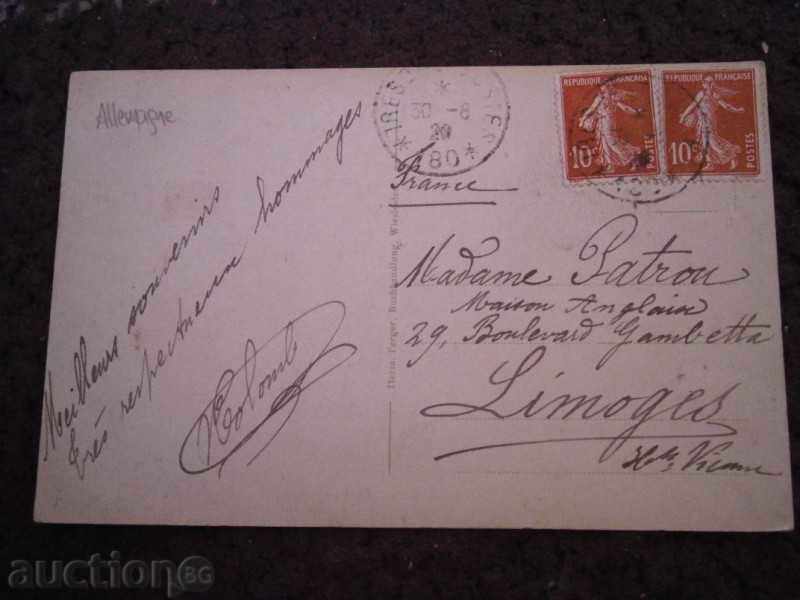 Allemagne
Meilleurs souvenirs
très respectueux hommages
Colomb
30 -8
20
80
REPUBLIQUE FRANÇAISE
10c
POSTES
REPUBLIQUE FRANÇAISE
10c
POSTES
France
Madame Patrou
Maison Anglaise
29, Boulevard Gambetta
Limoges
Hte Vienne
Buchhandlung,
auction BG